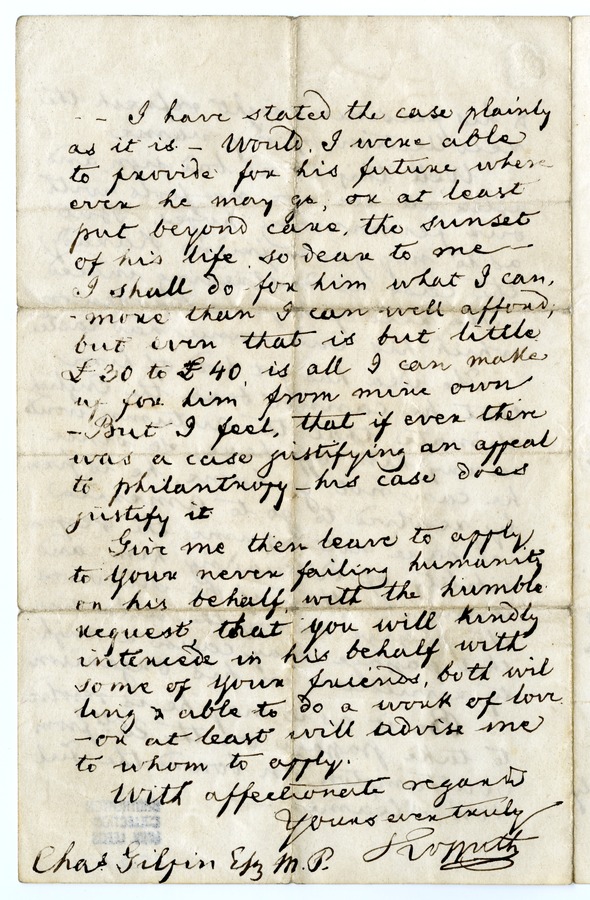 -- I have stated the case plainly
as it is - Would, I were able
to provide for his future where
ever he may go, or at least
put beyond care, the sunset
of his life, so dear to me -
I shall do for him what I can,
- more than I can well afford;
but even that is but little
£30 to £40, is all I can make
up for him from mine own
- But I feel, that if ever there
was a case justifying an appeal
to philantropy - his case does
justify it
Give me then leave to apply
to your never failing humanity
on his behalf, with the humble
request, that you will kindly
intercede in his behalf with
some of your friends, both wil
ling & able to do a work of love
- or at least will advise me
to whom to apply.
With affectionate regards
Yours ever truly
Kossuth
Chas Gilpin Esq M.P.